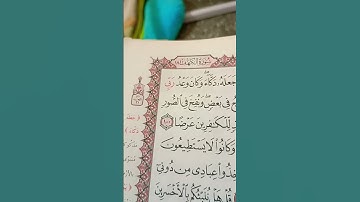 سُورَةُ الكَهْفِ
جَعَلَهُۥ دَكَّآءَۖ وَكَانَ وَعۡدُ رَبِّي
فِي بَعۡضٖۖ وَنُفِخَ فِي ٱلصُّورِ
لِّلۡكَٰفِرِينَ عَرۡضًا ١٠٠
وَكَانُواْ لَا يَسۡتَطِيعُونَ
عِبَادِي مِن دُونِيٓ
هَلۡ نُنَبِّئُكُم بِٱلۡأَخۡسَرِينَ